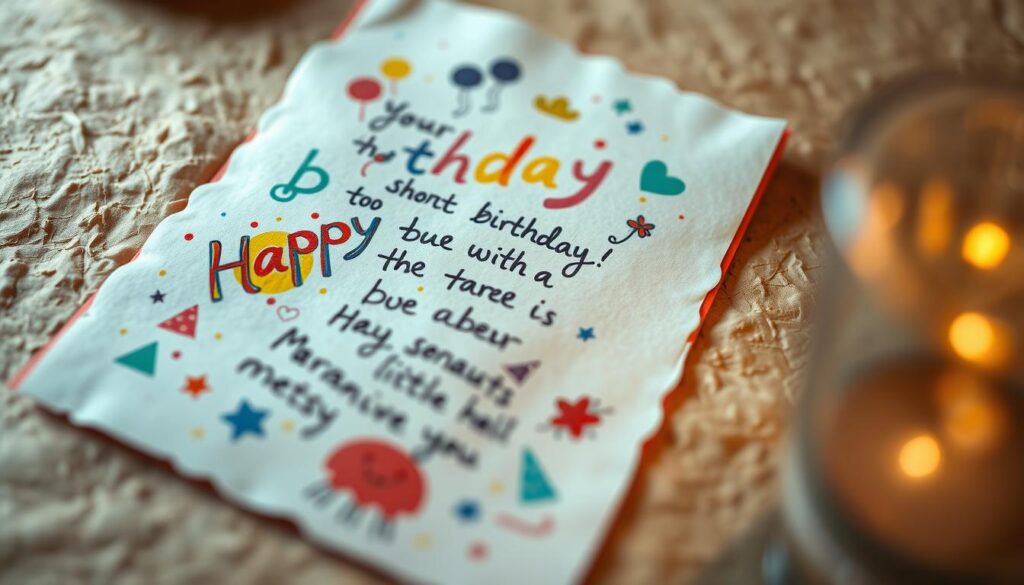 your
the thday
b short birthday!
too bue with a
Happy the taree is
bue abeur
Hay, senauts
little hell
Maranive you
metsy